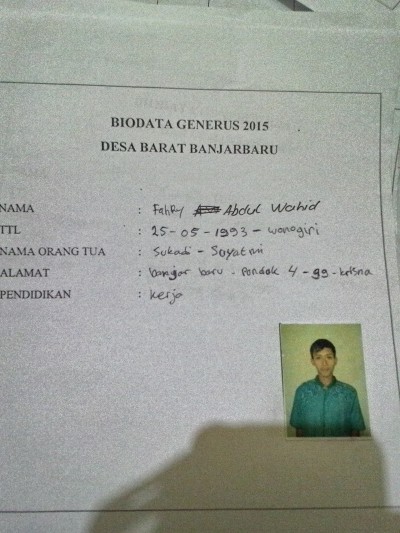 BIODATA GENERUS 2015
DESA BARAT BANJARBARU
NAMA : Fahry Abdul Wahid
TTL : 25-05-1993 - wonogiri
NAMA ORANG TUA : Sukadi - Suyatmi
ALAMAT : banjar baru - Pondok 4 - gg - krisna
PENDIDIKAN : kerja